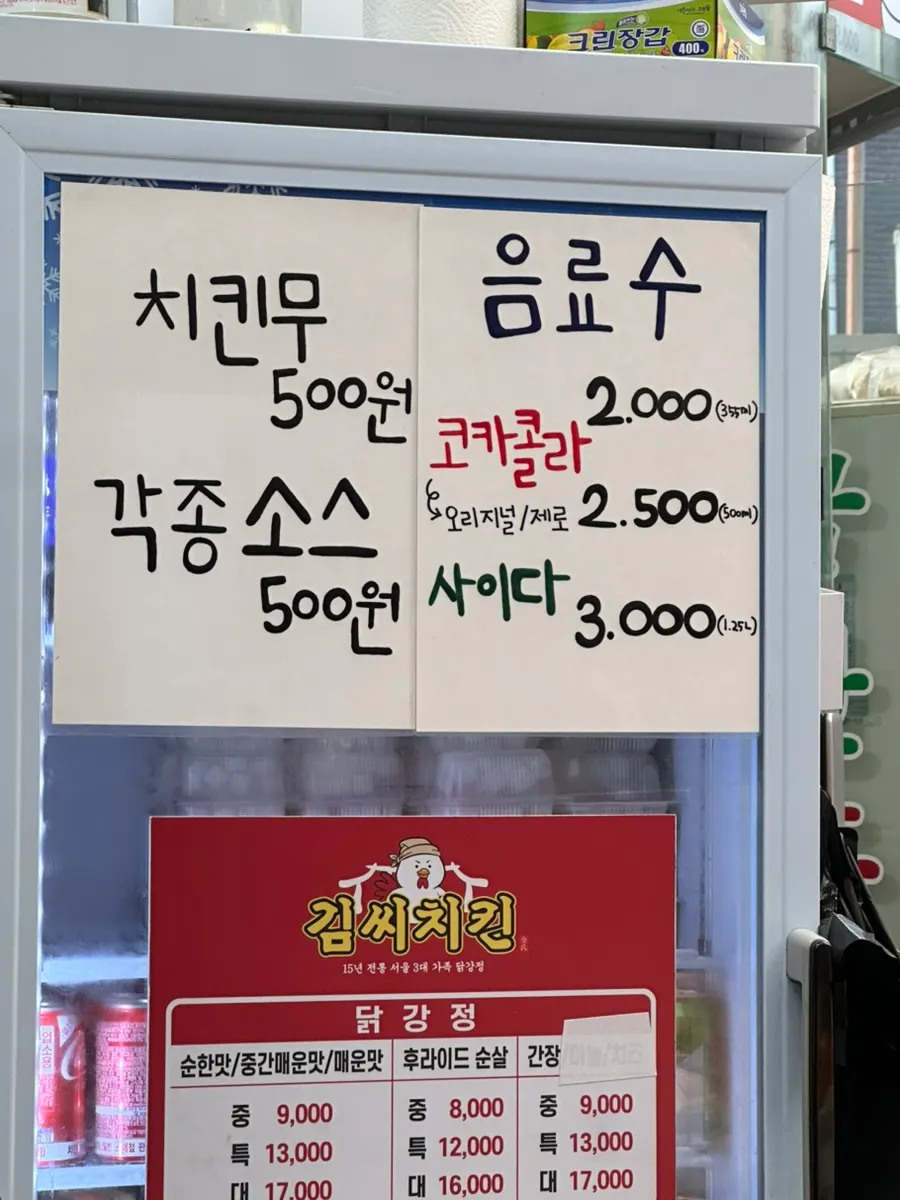 크린장갑
400
치킨무
500원
각종 소스
500원
음료수
2.000 (355ml)
코카콜라
오리지널/제로 2.500 (500ml)
사이다
3.000 (1.25L)
김씨치킨
15년 전통 서울 3대 가족 닭강정
닭강정
순한맛/중간매운맛/매운맛 후라이드 순살 간장/마늘/치즈
중 9,000 중 8,000 중 9,000
특 13,000 특 12,000 특 13,000
대 17,000 대 16,000 대 17,000
업소용